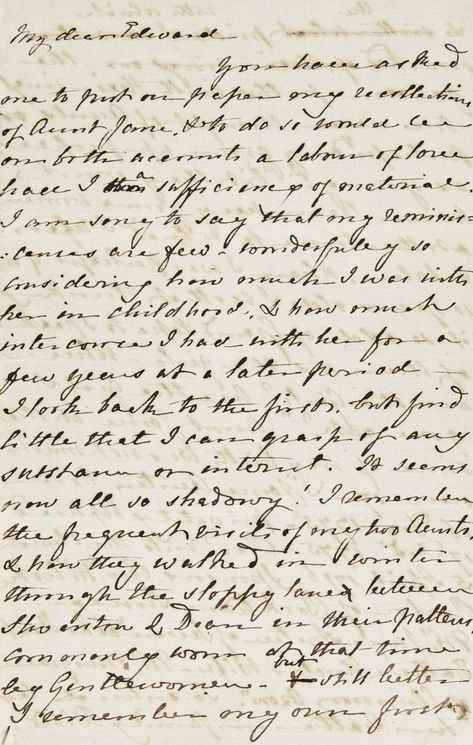 My dear Edward
You have asked
me to put on paper my recollections
of Aunt Jane, & to do so would be
on both accounts a labour of love
had I a sufficiency of material.
I am sorry to say that my reminis-
:cences are few - wonderfully so
considering how much I was with
her in childhood, & how much
intercourse I had with her for a
few years at a later period —
I look back to the first, but find
little that I can grasp of any
substance or interest. It seems
now all so shadowy! I remember
the frequent visits of my two Aunts,
& how they walked in winter
through the sloppy lane between
Steventon & Dean in their pattens
commonly worn at that time
by Gentlewomen - but still better
I remember my own first